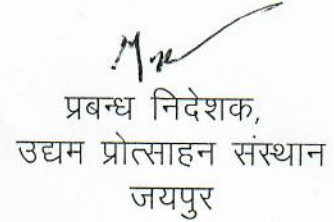 प्रबन्ध निदेशक,
उद्यम प्रोत्साहन संस्थान
जयपुर